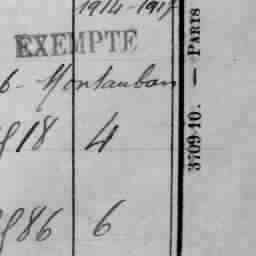 1914-1917
EXEMPTE
6 - Montauban
918 4
986 6
3709-10. — PARIS